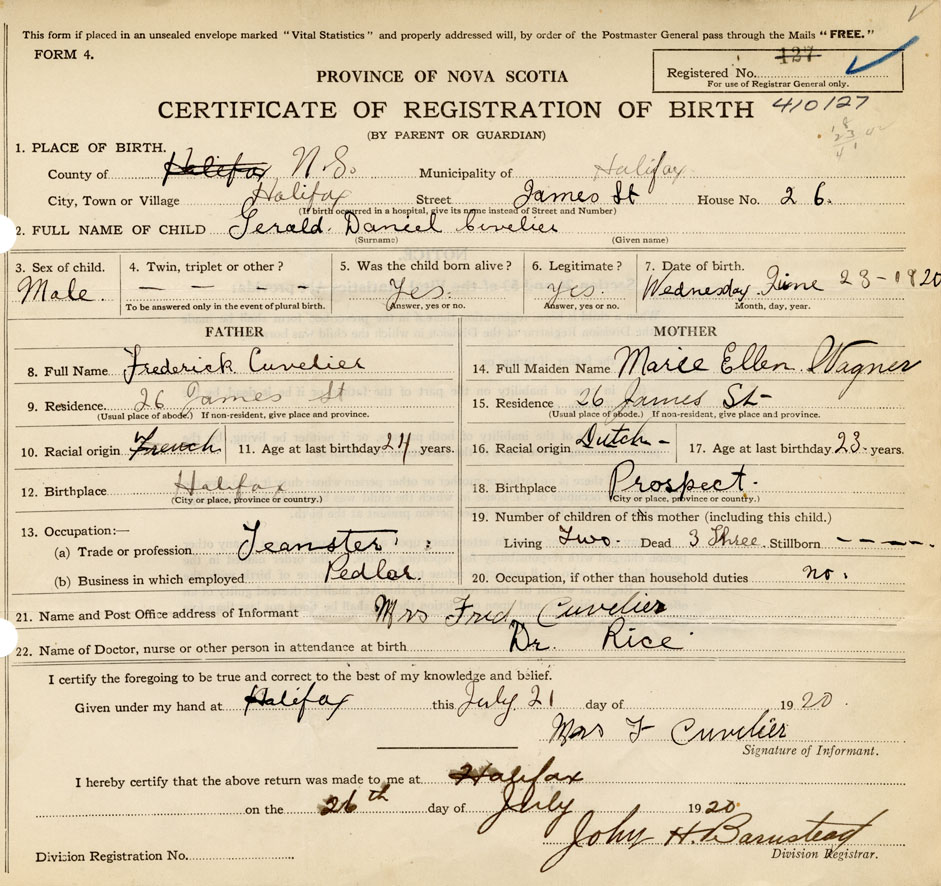 This form if placed in an unsealed envelope marked "Vital Statistics" and properly addressed will, by order of the Postmaster General pass through the Mails "FREE."
FORM 4.
127
Registered No.
For use of Registrar General only.
PROVINCE OF NOVA SCOTIA
CERTIFICATE OF REGISTRATION OF BIRTH 410127
(BY PARENT OR GUARDIAN)
1. PLACE OF BIRTH.
County of Halifax N.S. Municipality of Halifax
City, Town or Village Halifax Street James St House No. 26.
(If birth occurred in a hospital, give its name instead of Street and Number)
2. FULL NAME OF CHILD Gerald Daniel Cuvelier
(Surname) (Given name)
3. Sex of child. 4. Twin, triplet or other? 5. Was the child born alive? 6. Legitimate? 7. Date of birth.
Male — — — Yes. Yes. Wednesday June 23-1920
To be answered only in the event of plural birth. (Answer, yes or no. (Answer, yes or no. Month, day, year.
FATHER MOTHER
8. Full Name Frederick Cuvelier 14. Full Maiden Name Marie Ellen Wagner
9. Residence. 26 James St 15. Residence 26 James St-
(Usual place of abode.) If non-resident, give place and province. (Usual place of abode.) If non-resident, give place and province.
10. Racial origin French 11. Age at last birthday 24 years. 16. Racial origin Dutch - 17. Age at last birthday 23 years.
12. Birthplace Halifax 18. Birthplace Prospect.
(City or place, province or country.) (City or place, province or country.)
13. Occupation:— 19. Number of children of this mother (including this child.)
(a) Trade or profession, Teamster Living Two. Dead 3 Three. Stillborn - - - -
(b) Business in which employed Pedlar. 20. Occupation, if other than household duties no.
21. Name and Post Office address of Informant Mrs Fred Cuvelier
22. Name of Doctor, nurse or other person in attendance at birth Dr. Rice
I certify the foregoing to be true and correct to the best of my knowledge and belief.
Given under my hand at Halifax this July 21 day of 1920
Mrs F Cuvelier
Signature of Informant.
I hereby certify that the above return was made to me at Halifax
on the 26th day of July 1920
John H. Barnstead
Division Registrar.
Division Registration No.